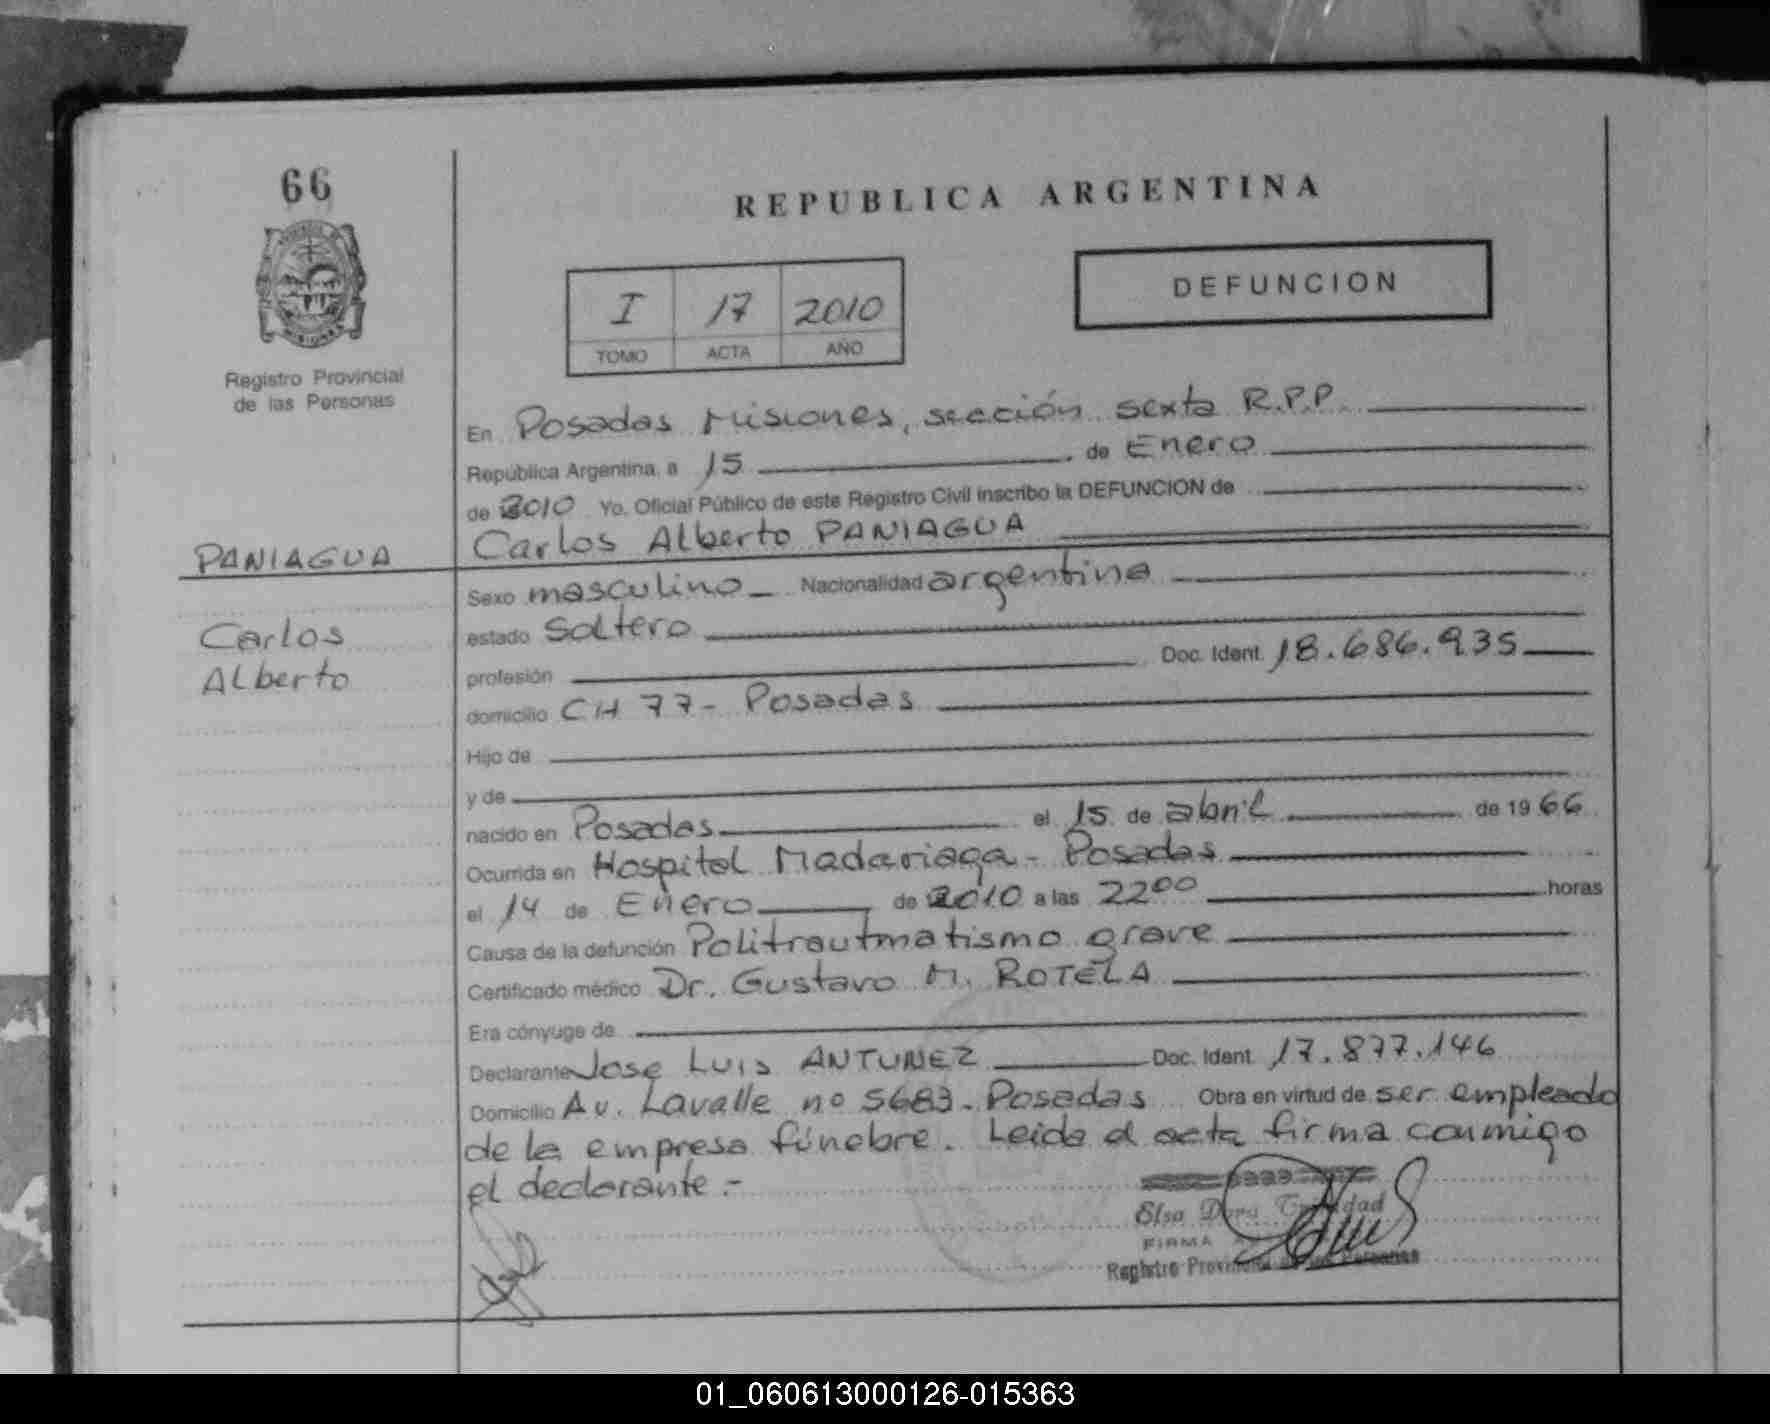 66
MISIONES
Registro Provincial
de las Personas
REPUBLICA ARGENTINA
I 17 2010
TOMO ACTA AÑO
DEFUNCION
En Posadas Misiones, sección sexta R.P.P.
República Argentina, a 15 de Enero
de 2010 Yo, Oficial Público de este Registro Civil inscribo la DEFUNCION de
Carlos Alberto PANIAGUA
PANIAGUA
Carlos
Alberto
Sexo masculino Nacionalidad argentina
estado soltero
profesión Doc. Ident. 18.686.935
domicilio CH 77- Posadas
Hijo de
y de
nacido en Posadas el 15 de abril de 1966
Ocurrida en Hospital Madariaga - Posadas
el 14 de Enero de 2010 a las 22⁰⁰ horas
Causa de la defunción Politrautmatismo grave
Certificado médico Dr. Gustavo M. ROTELA
Era cónyuge de
Declarante Jose Luis ANTUNEZ Doc. Ident. 17.877.146
Domicilio Av. Lavalle nº 5683. Posadas Obra en virtud de ser empleado
de la empresa fúnebre. Leida el acta firma conmigo
el declarante.-
Elsa Dora Trinidad
FIRMA
Registro Provincial de las Personas
01_060613000126-015363